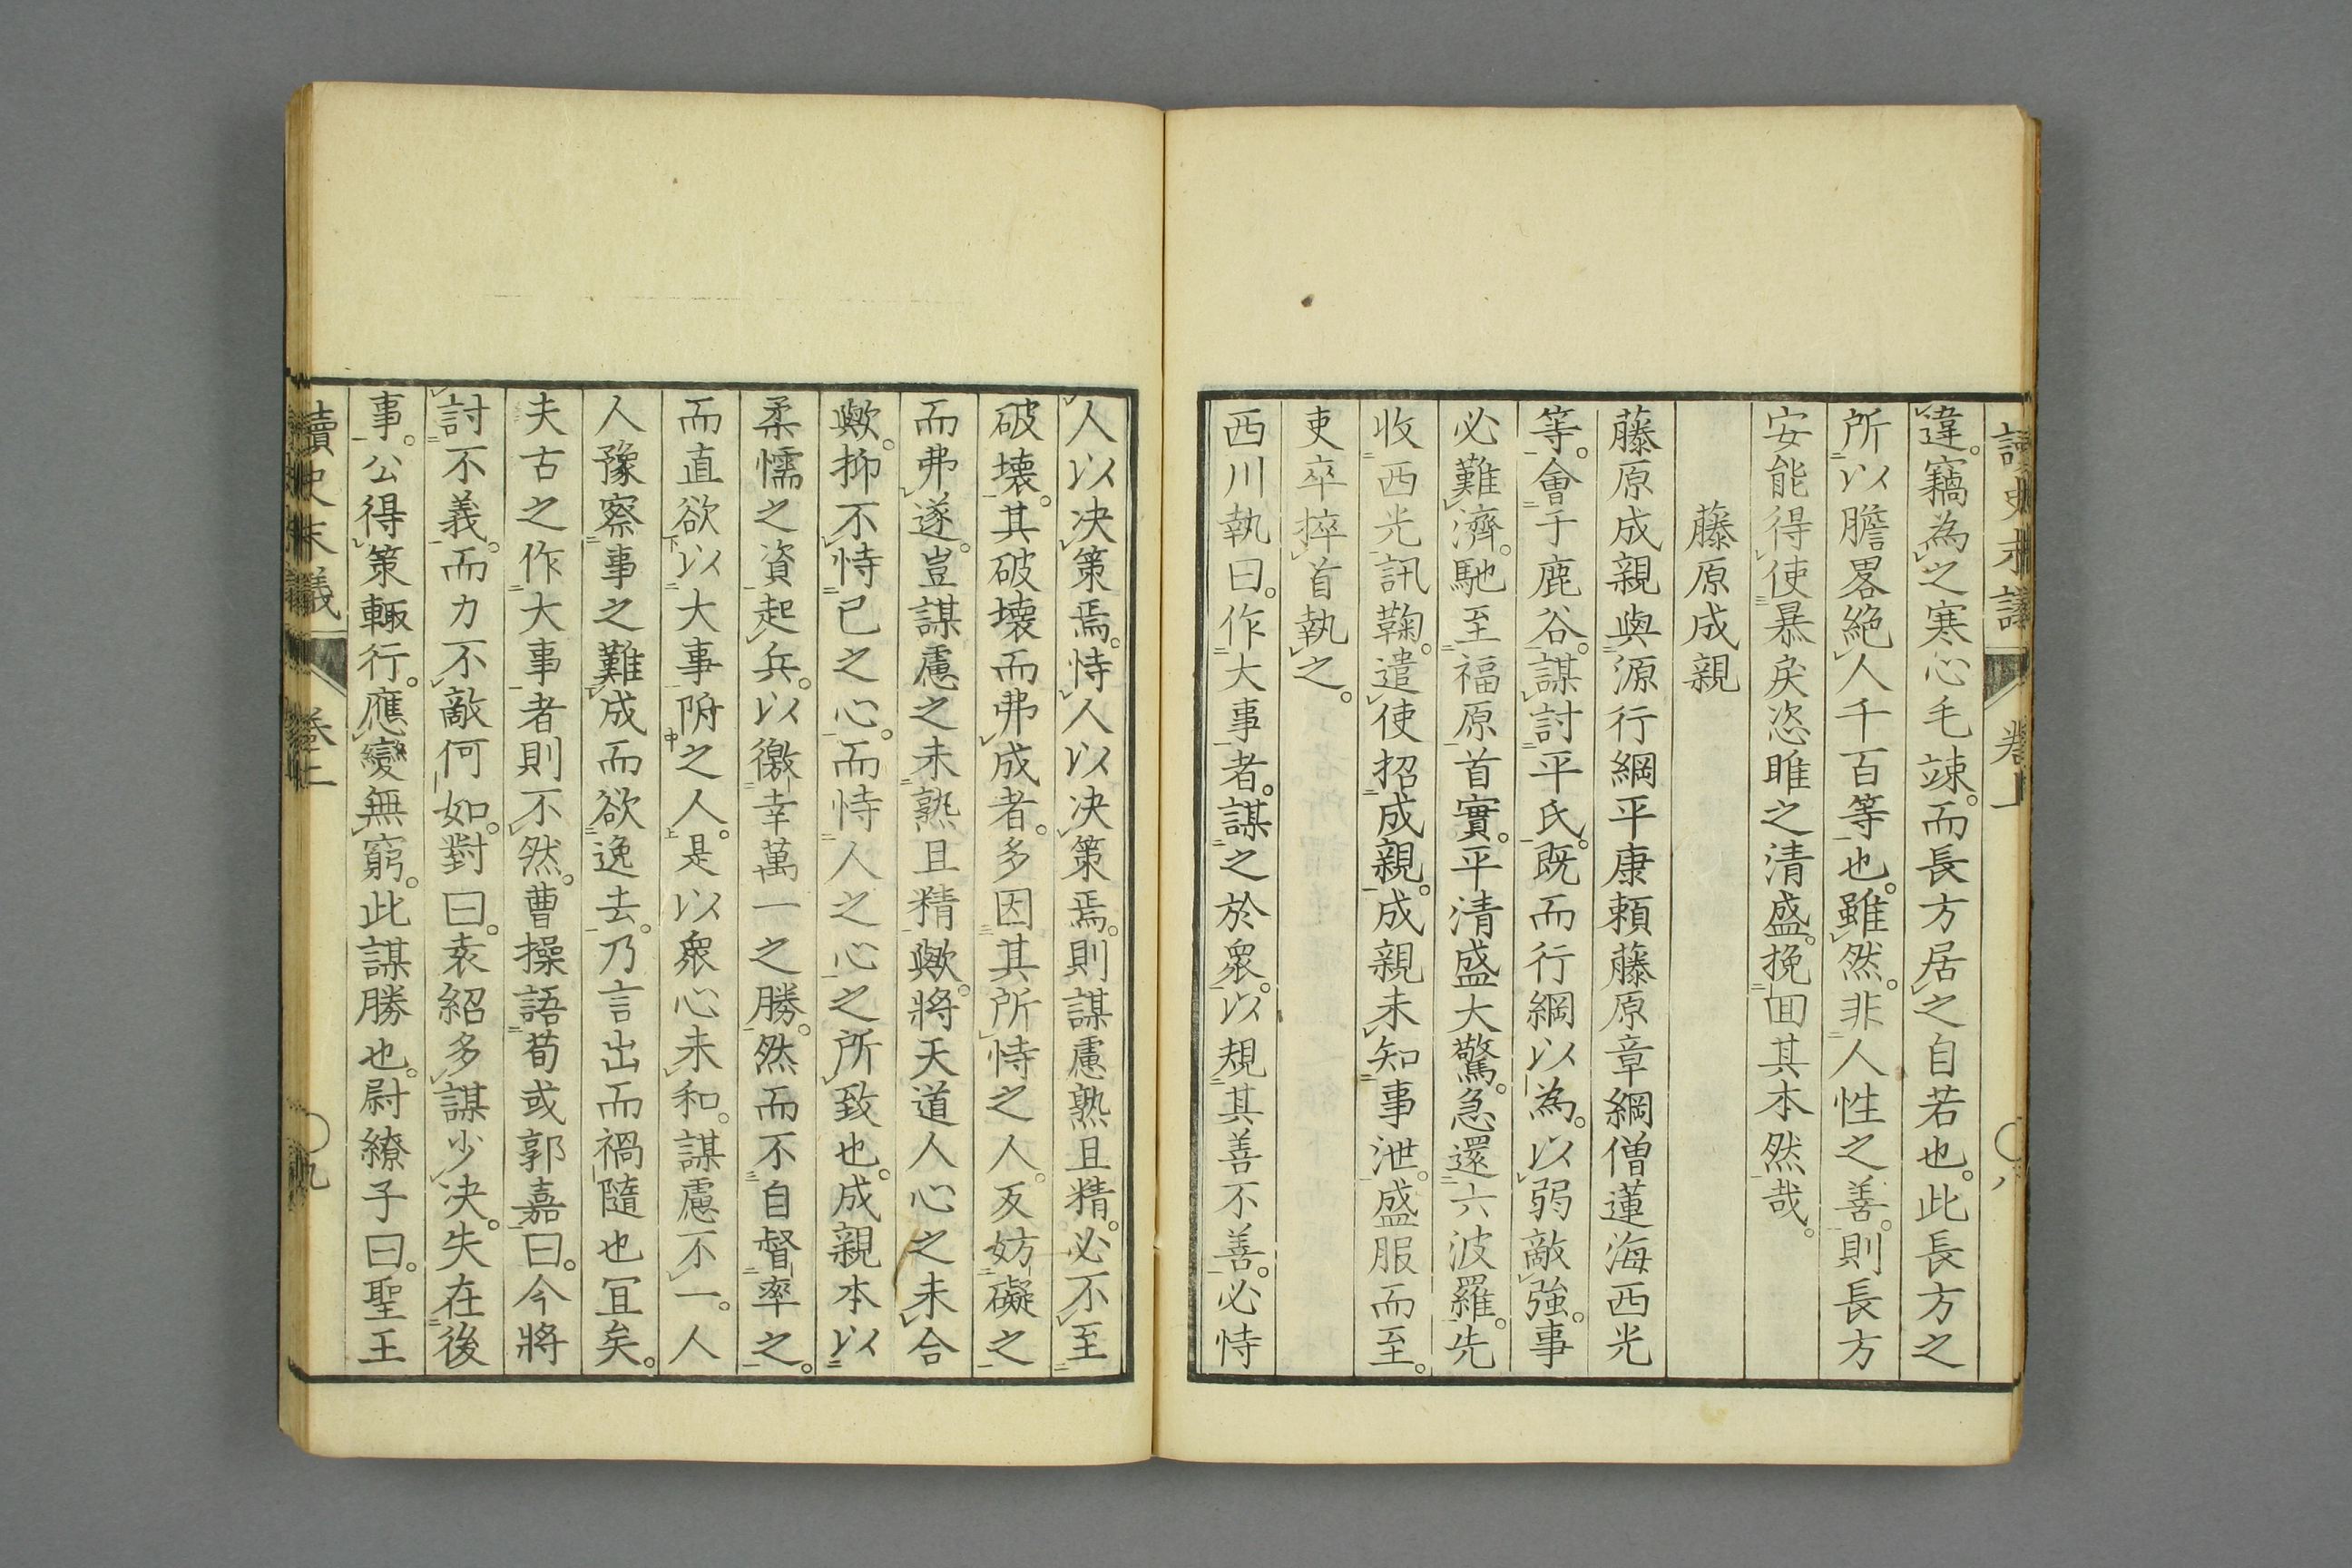 讀史末議　卷上　〇八
違。竊為之寒心毛竦。而長方居之自若也。此長方之
所以膽畧絶人千百等也。雖然。非人性之善。則長方
安能得使暴戾恣睢之清盛。挽囬其本然哉。
藤原成親
藤原成親與源行綱平康頼藤原章綱僧蓮海西光
等。會于鹿谷。謀討平氏。既而行綱以為。以弱敵強。事
必難濟。馳至福原首實。平清盛大驚。急還六波羅。先
收西光訊鞫。遣使招成親。成親未知事泄。盛服而至。
吏卒捽首執之。
西川執曰。作大事者。謀之於衆。以規其善不善。必恃
人以决策焉。恃人以决策焉。則謀慮熟且精。必不至
破壊。其破壊而弗成者。多因其所恃之人。反妨礙之
而弗遂。豈謀慮之未熟且精歟。將天道人心之未合
歟。抑不恃已之心。而恃人之心之所致也。成親本以
柔懦之資起兵。以徼幸萬一之勝。然而不自督率之。
而直欲以大事陏之人。是以衆心未和。謀慮不一。人
人豫察事之難成而欲逸去。乃言出而禍隨也冝矣。
夫古之作大事者則不然。曹操語荀或郭嘉曰。今將
討不義。而力不敵何如。對曰。袁紹多謀少决。失在後
事。公得策輙行。應變無窮。此謀勝也。尉繚子曰。聖王
讀史末議　卷上　〇九